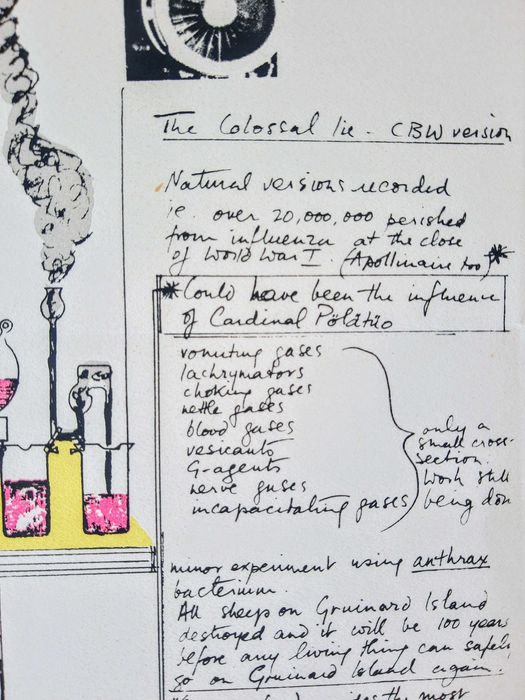 The Colossal lie - CBW version
Natural versions recorded
ie. over 20,000,000 perished
from influenza at the close
of World War I. (Apollinaire too)*
*Could have been the influence
of Cardinal Pölätüo
vomiting gases
lachrymators
choking gases
nettle gases
blood gases
vesicants
G-agents
nerve gases
incapacitating gases
only a
small cross-
section.
Work still
being don
minor experiment using anthrax
bacterium.
All sheep on Gruinard Island
destroyed and it will be 100 years
before any living thing can safely
go on Gruinard Island again.
the most